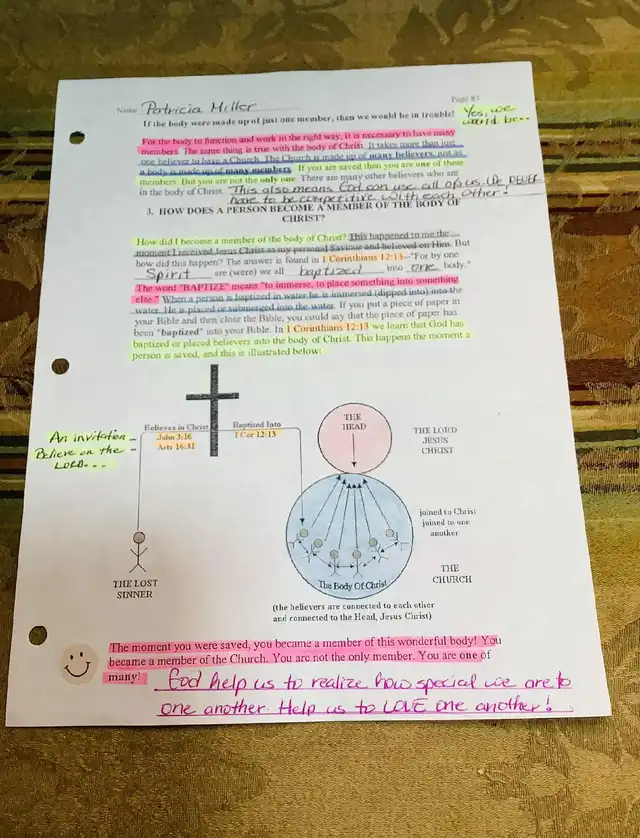 Page 83
Name Patricia Miller
If the body were made up of just one member, then we would be in trouble!
Yes, we
would be..
For the body to function and work in the right way, it is necessary to have many
members. The same thing is true with the body of Christ. It takes more than just
one believer to have a Church. The Church is made up of many believers, just as
a body is made up of many members. If you are saved then you are one of these
members. But you are not the only one. There are many other believers who are
in the body of Christ. This also means God can use all of us. We NEVER
have to be competitive with each other!
3. HOW DOES A PERSON BECOME A MEMBER OF THE BODY OF
CHRIST?
How did I become a member of the body of Christ? This happened to me the
moment I received Jesus Christ as my personal Saviour and believed on Him. But
how did this happen? The answer is found in 1 Corinthians 12:13--"For by one
Spirit are (were) we all baptized into one body."
The word "BAPTIZE" means "to immerse, to place something into something
else." When a person is baptized in water he is immersed (dipped into) into the
water. He is placed or submerged into the water. If you put a piece of paper in
your Bible and then close the Bible, you could say that the piece of paper has
been "baptized" into your Bible. In 1 Corinthians 12:13 we learn that God has
baptized or placed believers into the body of Christ. This happens the moment a
person is saved, and this is illustrated below:
An invitation
Believe on the
LORD...
Believes in Christ
John 3:16
Acts 16:31
Baptized Into
1 Cor 12:13
THE
HEAD
THE LORD
JESUS
CHRIST
joined to Christ
joined to one
another
THE
CHURCH
The Body Of Christ
THE LOST
SINNER
(the believers are connected to each other
and connected to the Head, Jesus Christ)
The moment you were saved, you became a member of this wonderful body! You
became a member of the Church. You are not the only member. You are one of
many! God help us to realize how special we are to
one another. Help us to LOVE one another!